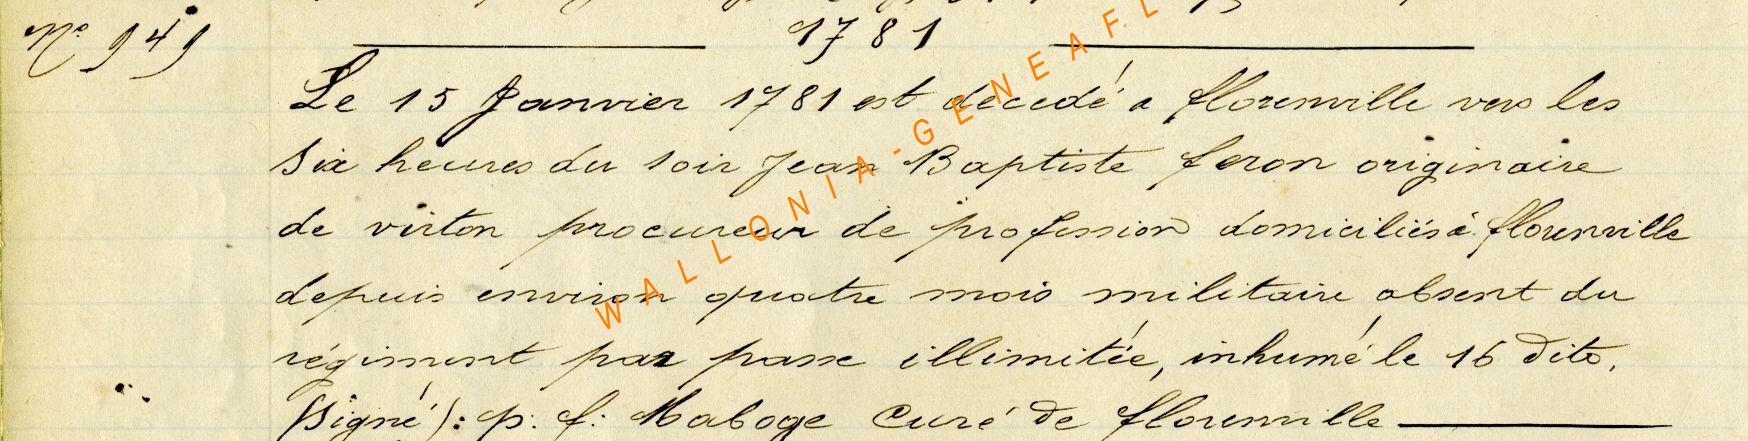 N° 949
1781
Le 15 Janvier 1781 est décedé a florenville vers les
six heures du soir Jean Baptiste feron originaire
de virton procureur de profession domiciliés à florenville
depuis environ quatre mois militaire absent du
régiment par passe illimitée, inhumé le 16 dito.
(Signé): p. f: Maboge Curé de florenville
WALLONIA-GENEAFL